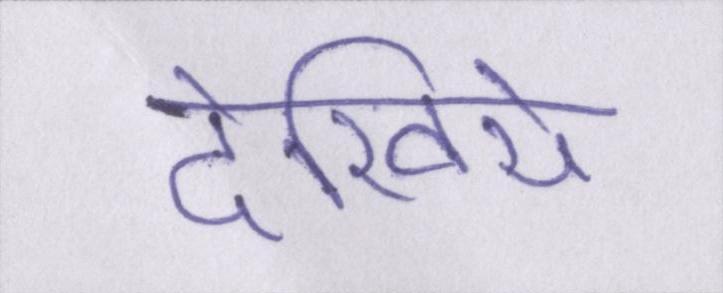 देखिये